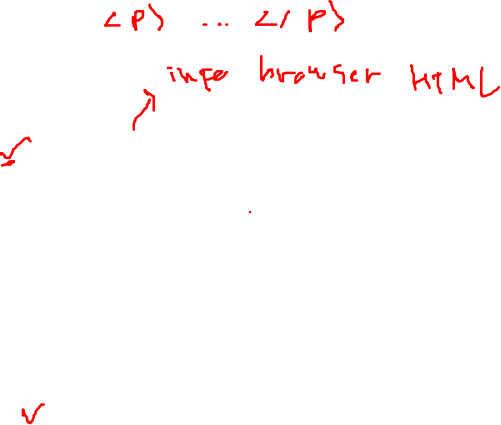 <p> ... </p>
info browser HTML